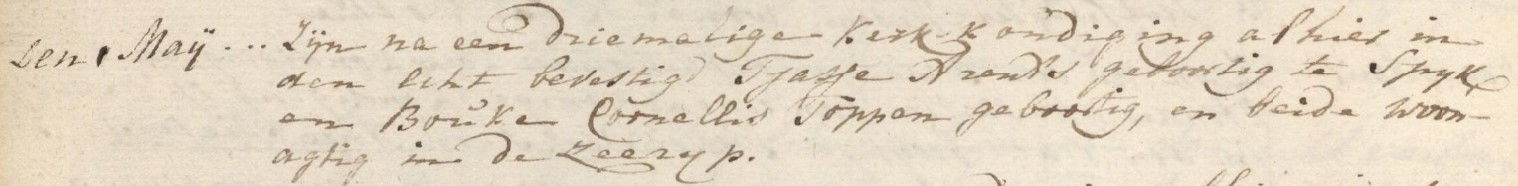 den 1 Maÿ ... Zijn na een driemalige Kerk-kondiging alhier in
den echt bevestigd Tjasse Arends geboortig te Spyk
en Bouke Cornellis Toppen geboortig, en beide woon-
agtig in de Zeeryp.